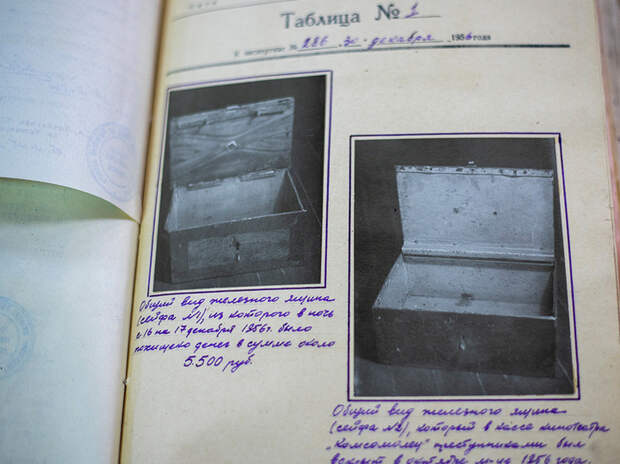 Таблица № 1
К экспертизе № 286 30 - декабря 1956 года
Общий вид железного ящика
(сейфа №1), из которого в ночь
с 16 на 17 декабря 1956 г. было
похищено денег в сумме около
5.500 руб.
Общий вид железного ящика
(сейфа №2), который в кассе кинотеатра
"Комсомолец" преступниками был
вскрыт в октябре м-це 1956 года.